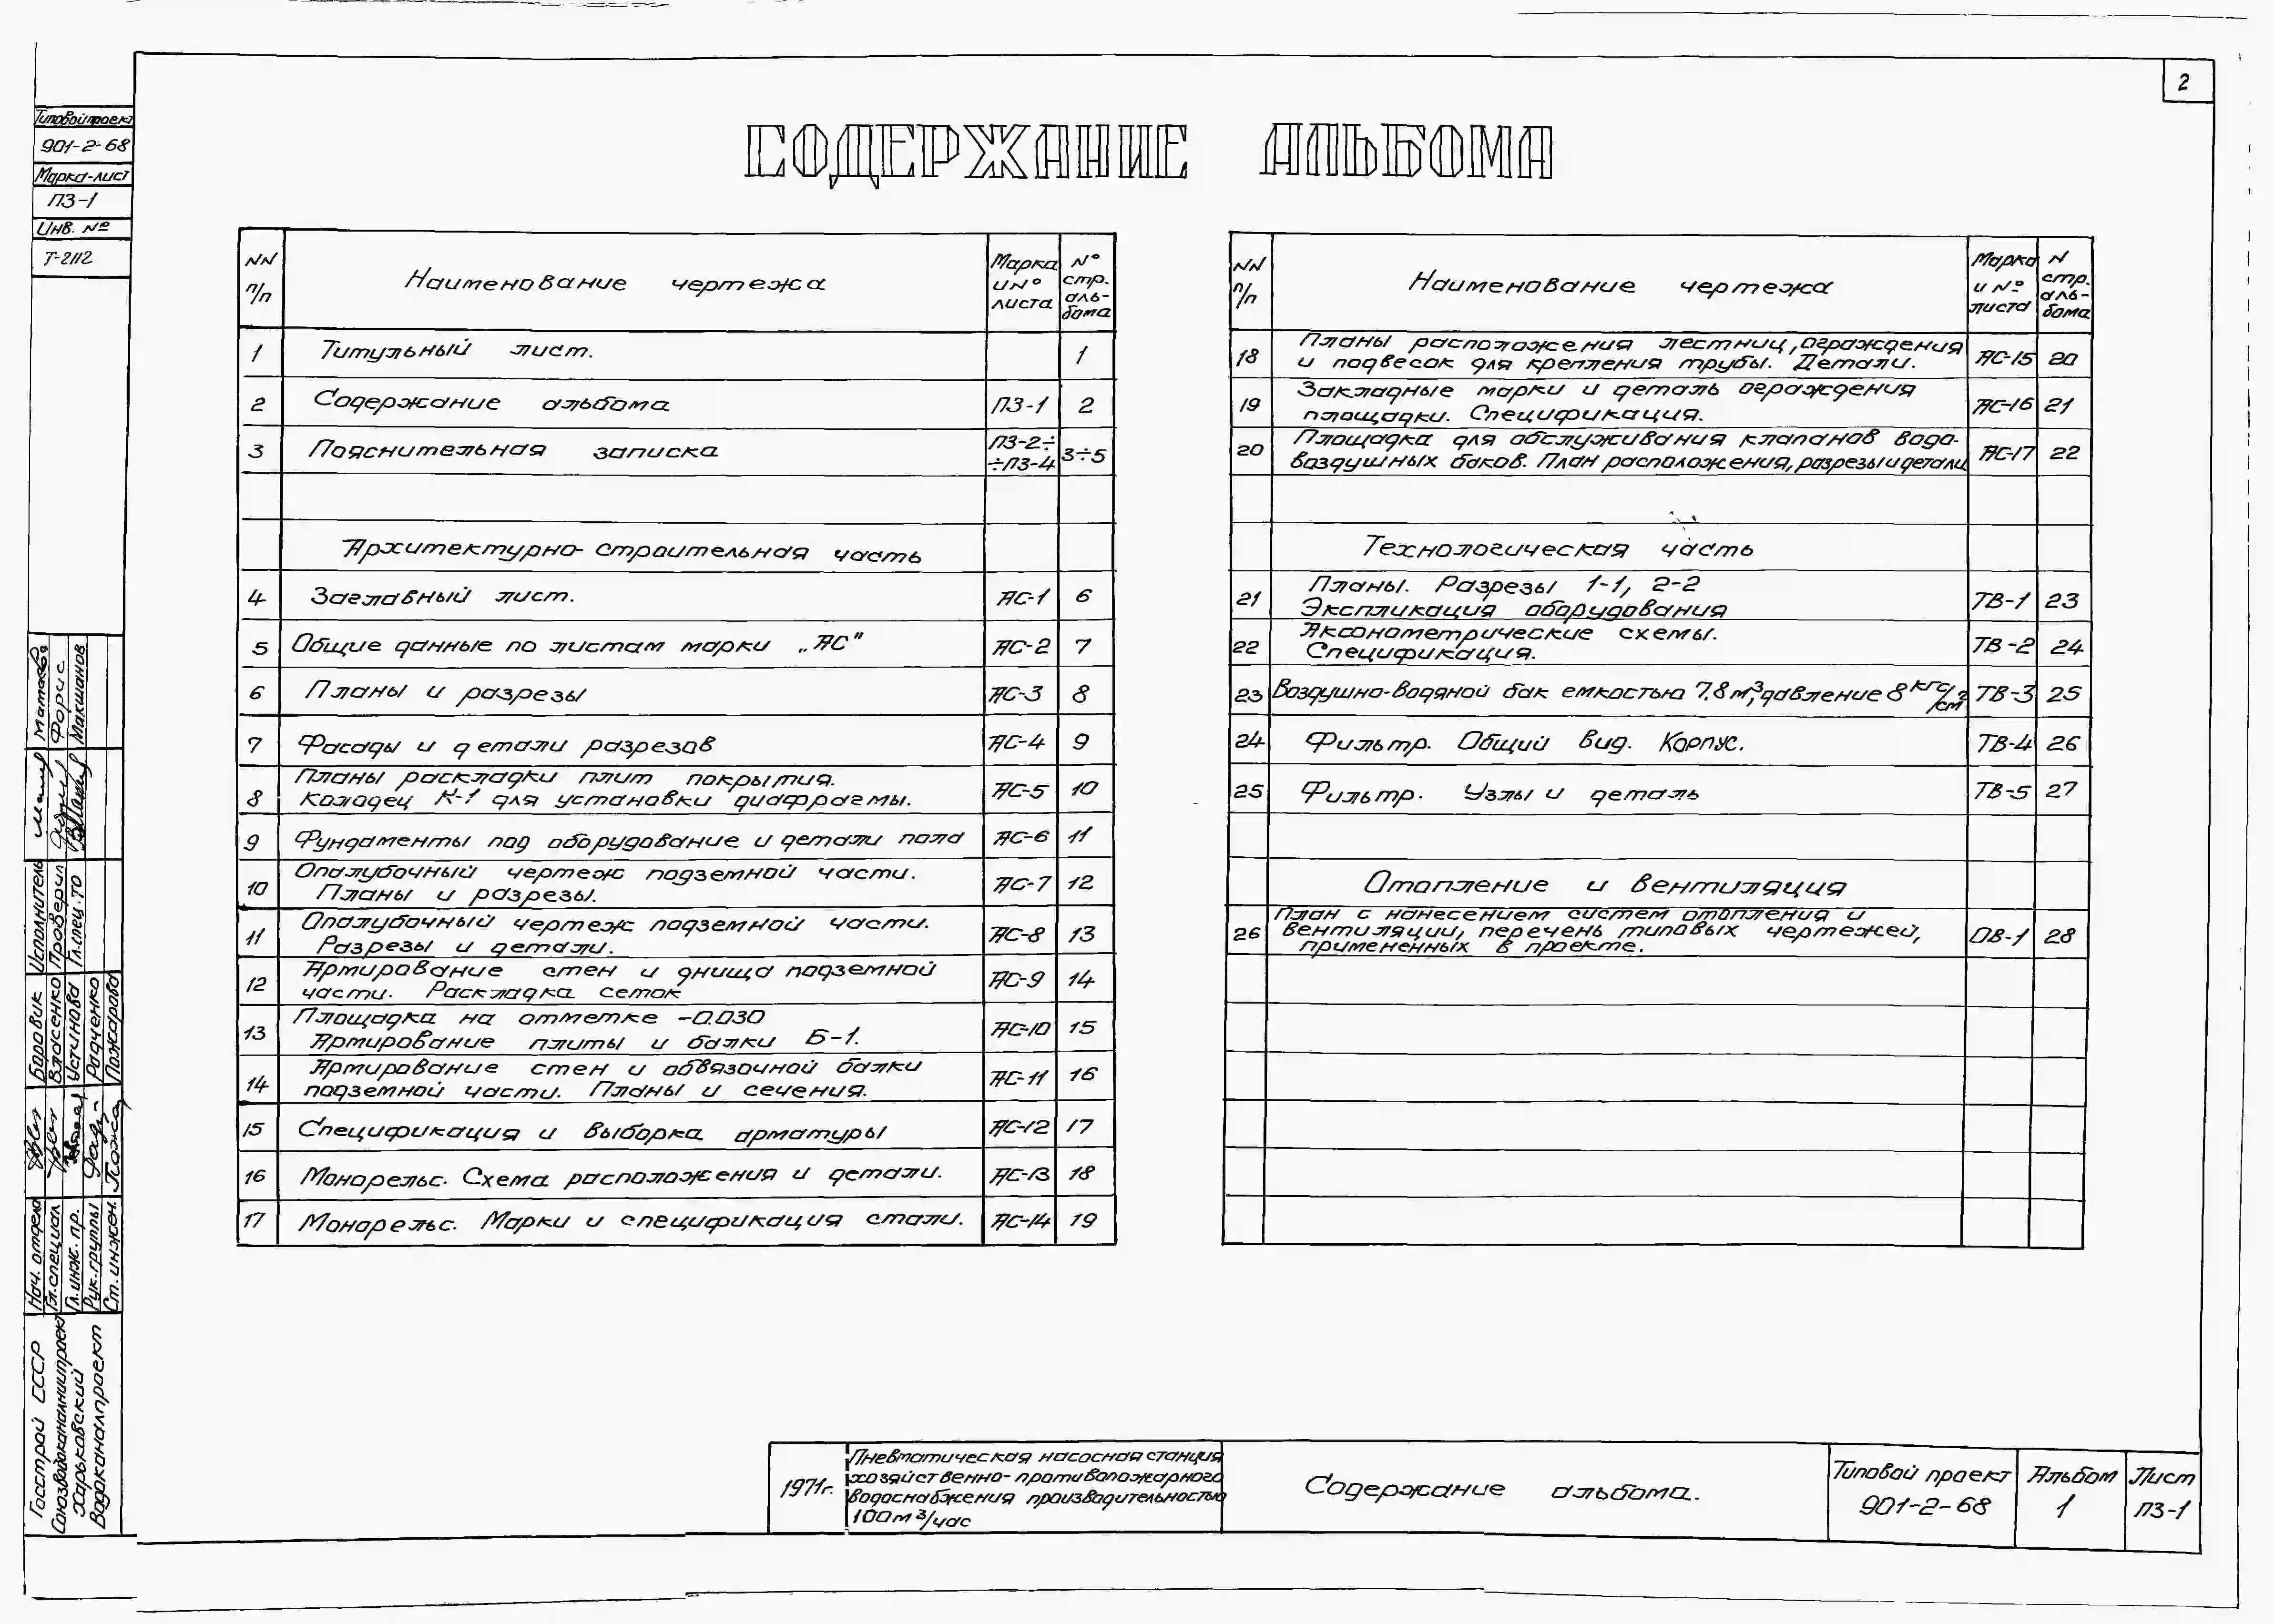 2
Типовой проект
901-2-68
Марка-лист
ПЗ-1
Инв. №
Т-2112
СОДЕРЖАНИЕ АЛЬБОМА
NN п/п
Наименование чертежа
Марка и N° листа
N° стр. аль-бома
1 Титульный лист. 1
2 Содержание альбома ПЗ-1 2
3 Пояснительная записка ПЗ-2÷ ÷ПЗ-4 3÷5
Архитектурно-строительная часть
4 Заглавный лист. АС-1 6
5 Общие данные по листам марки „АС" АС-2 7
6 Планы и разрезы АС-3 8
7 Фасады и детали разрезов АС-4 9
8 Планы раскладки плит покрытия.
Колодец К-1 для установки диафрагмы. АС-5 10
9 Фундаменты под оборудование и детали пола АС-6 11
10 Опалубочный чертеж подземной части.
Планы и разрезы. АС-7 12
11 Опалубочный чертеж подземной части.
Разрезы и детали. АС-8 13
12 Армирование стен и днища подземной
части. Раскладка сеток АС-9 14
13 Площадка на отметке -0.030
Армирование плиты и балки Б-1. АС-10 15
14 Армирование стен и обвязочной балки
подземной части. Планы и сечения. АС-11 16
15 Спецификация и выборка арматуры АС-12 17
16 Монорельс. Схема расположения и детали. АС-13 18
17 Монорельс. Марки и спецификация стали. АС-14 19
NN п/п
Наименование чертежа
Марка и № листа
N стр. аль-бома
18 Планы расположения лестниц, ограждения
и подвесок для крепления трубы. Детали. АС-15 20
19 Закладные марки и деталь ограждения
площадки. Спецификация. АС-16 21
20 Площадка для обслуживания клапанов водо-
воздушных баков. План расположения, разрезы и детали АС-17 22
Технологическая часть
21 Планы. Разрезы 1-1, 2-2
Экспликация оборудования ТВ-1 23
22 Аксонометрические схемы.
Спецификация. ТВ-2 24
23 Воздушно-водяной бак емкостью 7.8 м³, давление 8 кгс/см² ТВ-3 25
24 Фильтр. Общий вид. Корпус. ТВ-4 26
25 Фильтр. Узлы и деталь ТВ-5 27
Отопление и вентиляция
26 План с нанесением систем отопления и
вентиляции, перечень типовых чертежей,
примененных в проекте. ОВ-1 28
Исполнитель
Проверил Форис
Гл.спец.ТО Макшанов
Нач. отдела Боровик
Гл.специал Власенко
Гл.инж.пр. Устинова
Рук.группы Радченко
Ст.инжен. Пожарова
Госстрой СССР
Союзводоканалниипроект
Харьковский
Водоканалпроект
1971г.
Пневматическая насосная станция
хозяйственно-противопожарного
водоснабжения производительностью
100 м³/час
Содержание альбома.
Типовой проект
901-2-68
Альбом
1
Лист
ПЗ-1